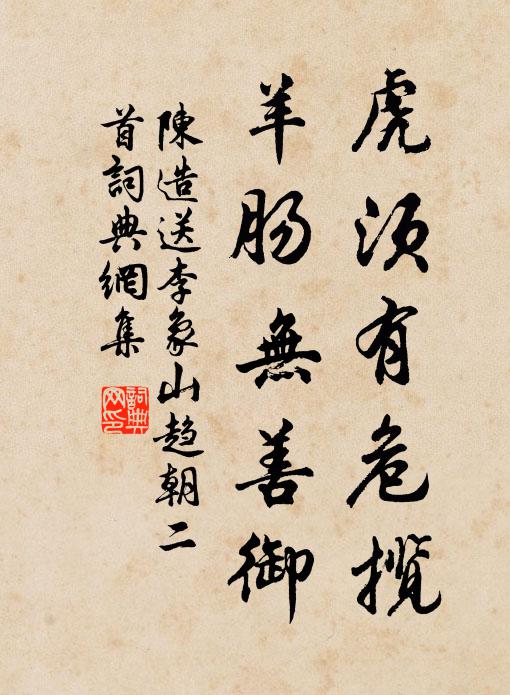 虎须有危揽
羊肠無善御
陳造送李象山趋朝二
首詞典網集
詞典网印